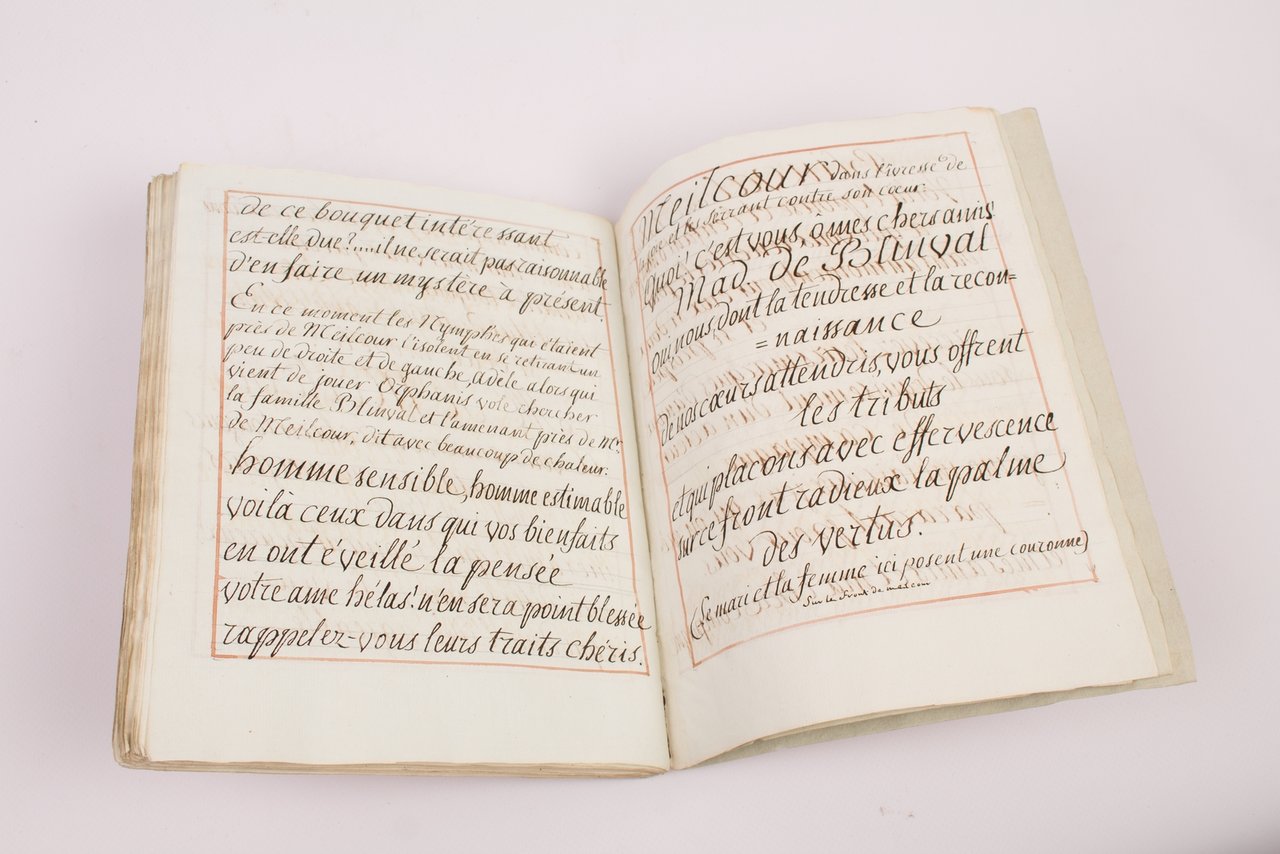 de ce bouquet intéressant
est-elle due?.....il ne serait pas raisonnable
d'en faire un mystère à présent.
En ce moment les Nymphes qui étaient
près de Meilcour l'isolent en se retirant un
peu de droite et de gauche, adèle alors qui
vient de jouer Orphanis vole chercher
la famille Blinval et l'amenant près de Mr.
de Meilcour, dit avec beaucoup de chaleur:
homme sensible, homme estimable
voilà ceux dans qui vos bienfaits
en ont éveillé la pensée
votre ame hélas! n'en sera point blessée
rappelez-vous leurs traits chéris.
Meilcour dans l'ivresse de
et les serrant contre son cœur:
Quoi! c'est vous, ô mes chers amis!
Mad. de Blinval
oui, nous, dont la tendresse et la recon=
=naissance
de nos cœurs attendris, vous offrent
les tributs
et qui placons avec effervescence
sur ce front radieux la palme
des vertus.
(Le mari et la femme ici posent une couronne)
sur le front de meilcour